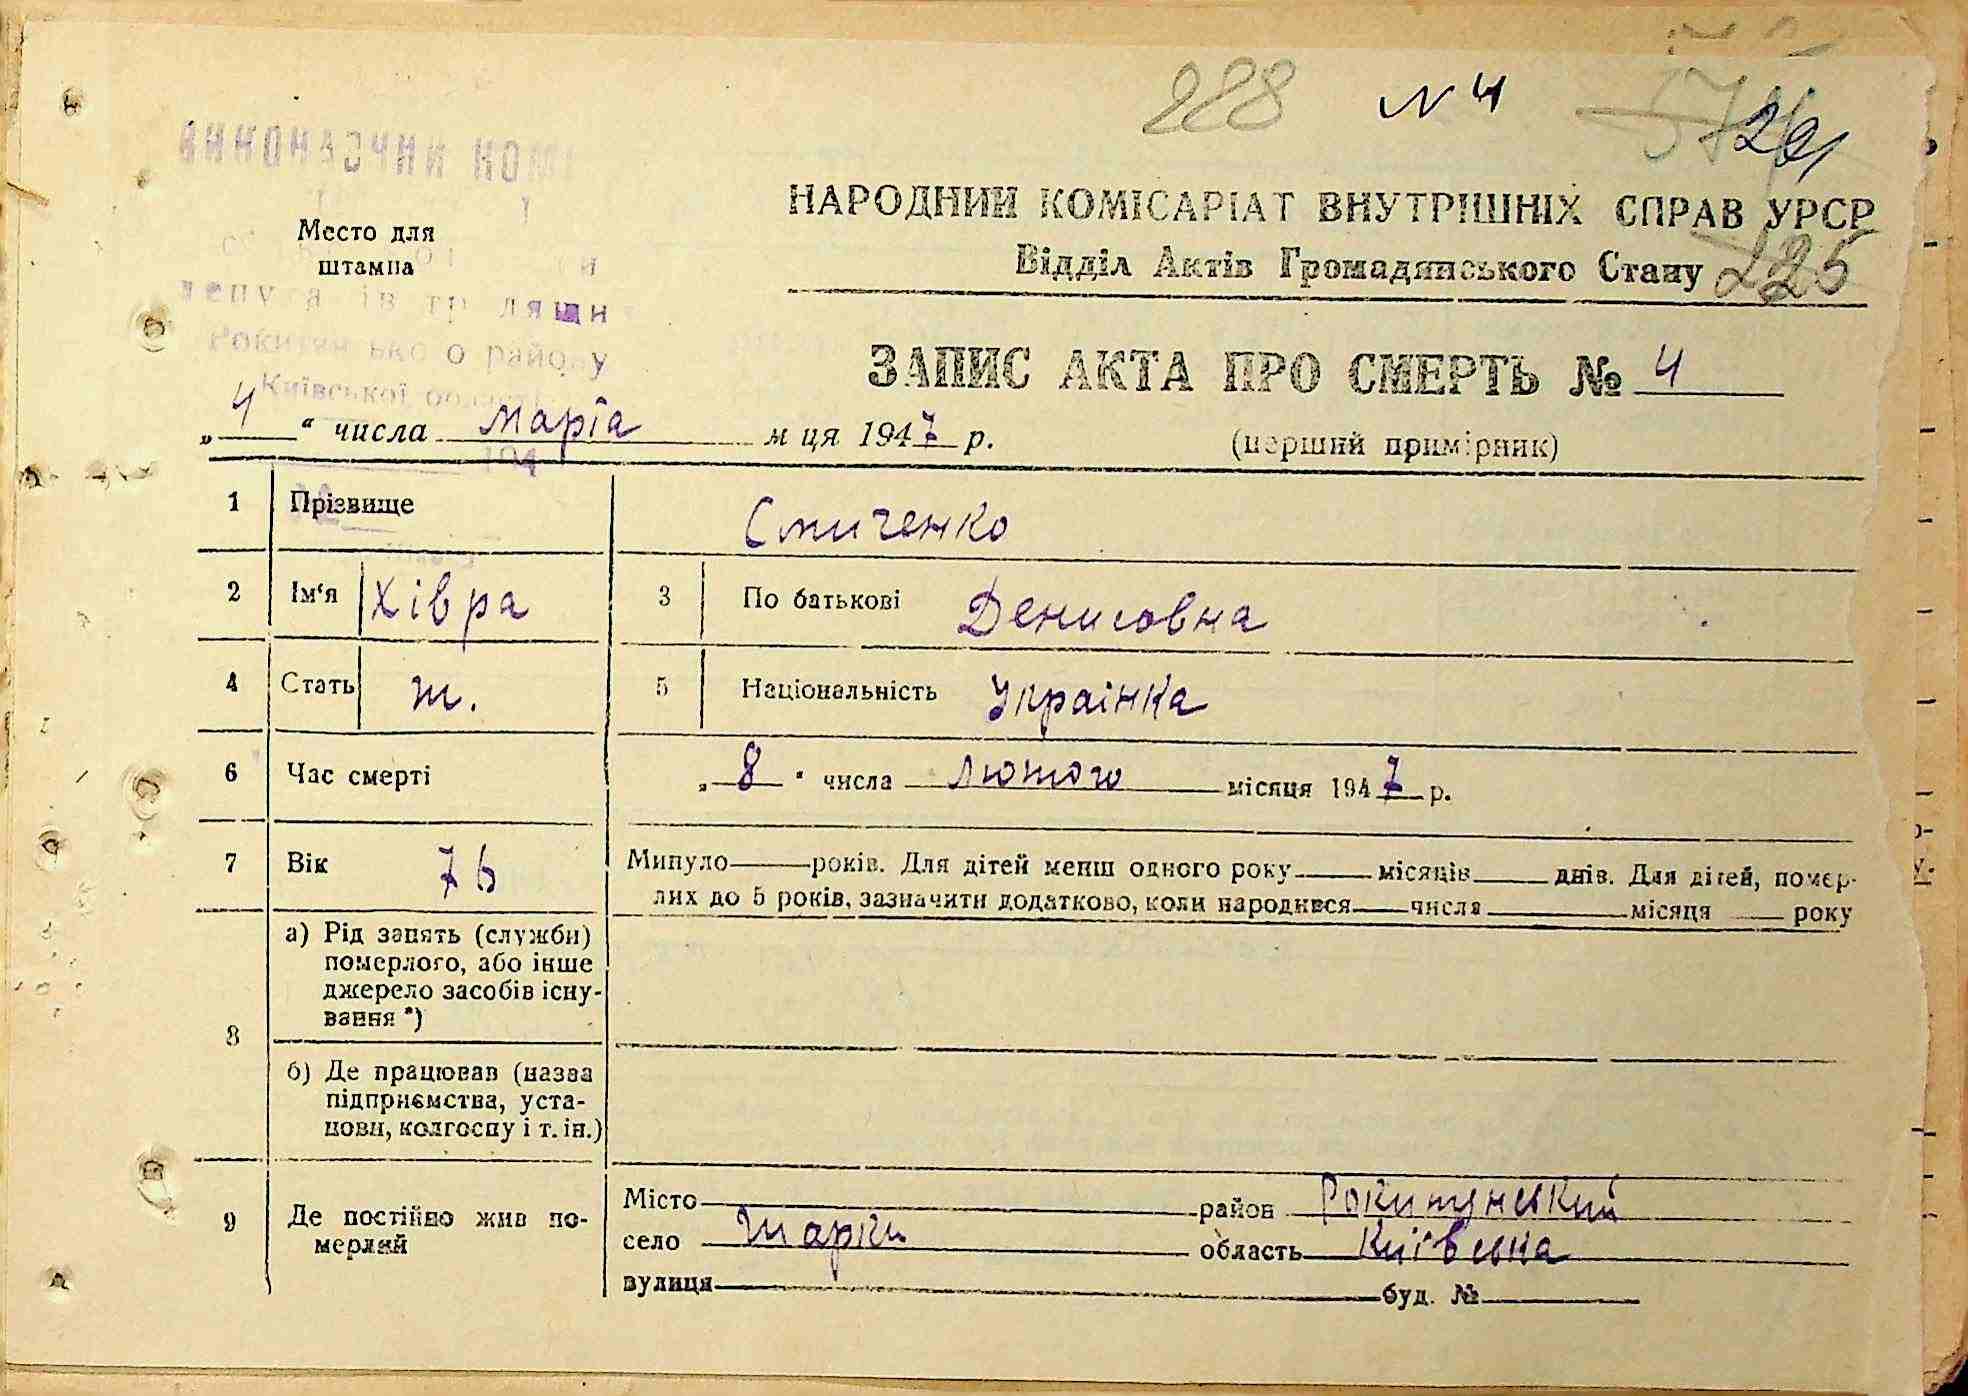 228 N 4 26
НАРОДНИЙ КОМІСАРІАТ ВНУТРІШНІХ СПРАВ УРСР
Відділ Актів Громадянського Стану 225
Место для
штампа
депутатів трудящих
Рокитянського району
Київської області
ЗАПИС АКТА ПРО СМЕРТЬ № 4
„ 4 “ числа марта м ця 1947 р. (перший примірник)
194
1 Прізвище Смиченко
2 Ім‘я Хівра 3 По батькові Денисовна
4 Стать ж. 5 Національність Українка
6 Час смерті „ 8 “ числа лютого місяця 1947 р.
7 Вік 76 Минуло років. Для дітей менш одного року місяців днів. Для дітей, помер-
лих до 5 років, зазначити додатково, коли народився числа місяця року
8 а) Рід занять (службн)
померлого, або інше
джерело засобів існу-
вання *)
б) Де працював (назва
підприємства, уста-
нови, колгоспу і т. ін.)
9 Де постійно жив по-
мерлий
Місто район Рокитянський
село Шарки область Київська
вулиця буд. №